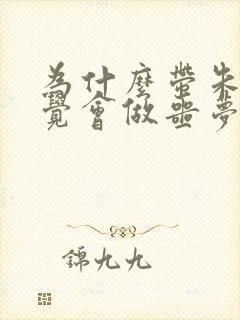 為什麼帶朱
覺會做噩夢
錦九九